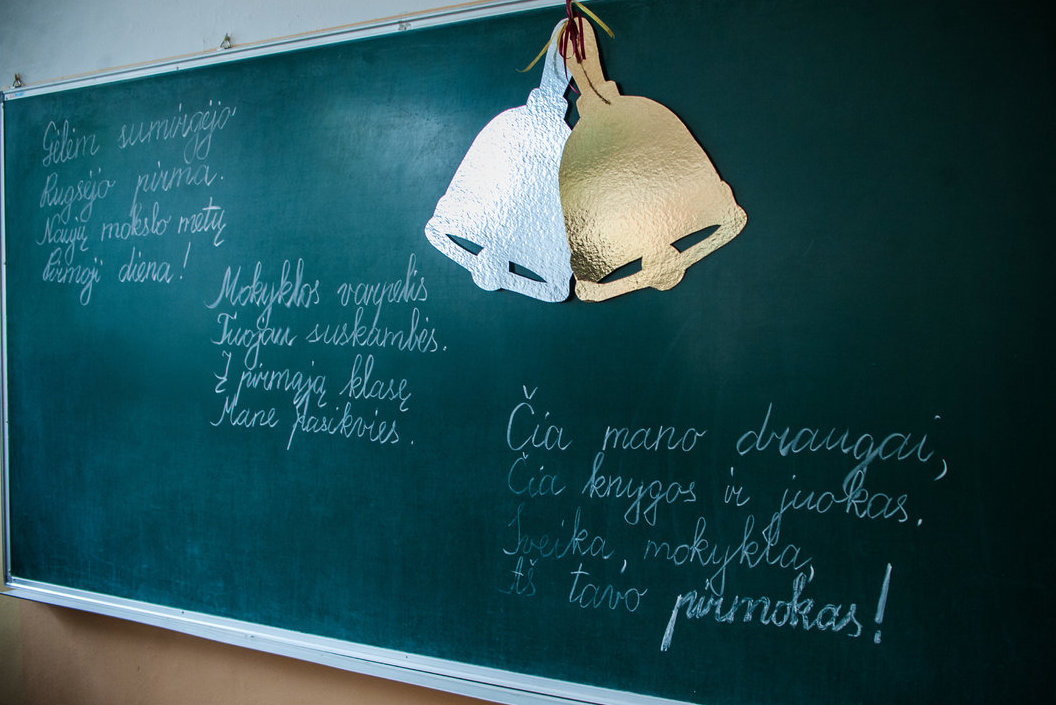 Gėlėm sumirgėjo
Rugsėjo pirma.
Naujų mokslo metų
Pirmoji diena!
Mokyklos varpelis
Tuojau suskambės.
Į pirmąją klasę
Mane pasikvies.
Čia mano draugai,
Čia knygos ir juokas.
Sveika, mokykla,
Aš tavo pirmokas!